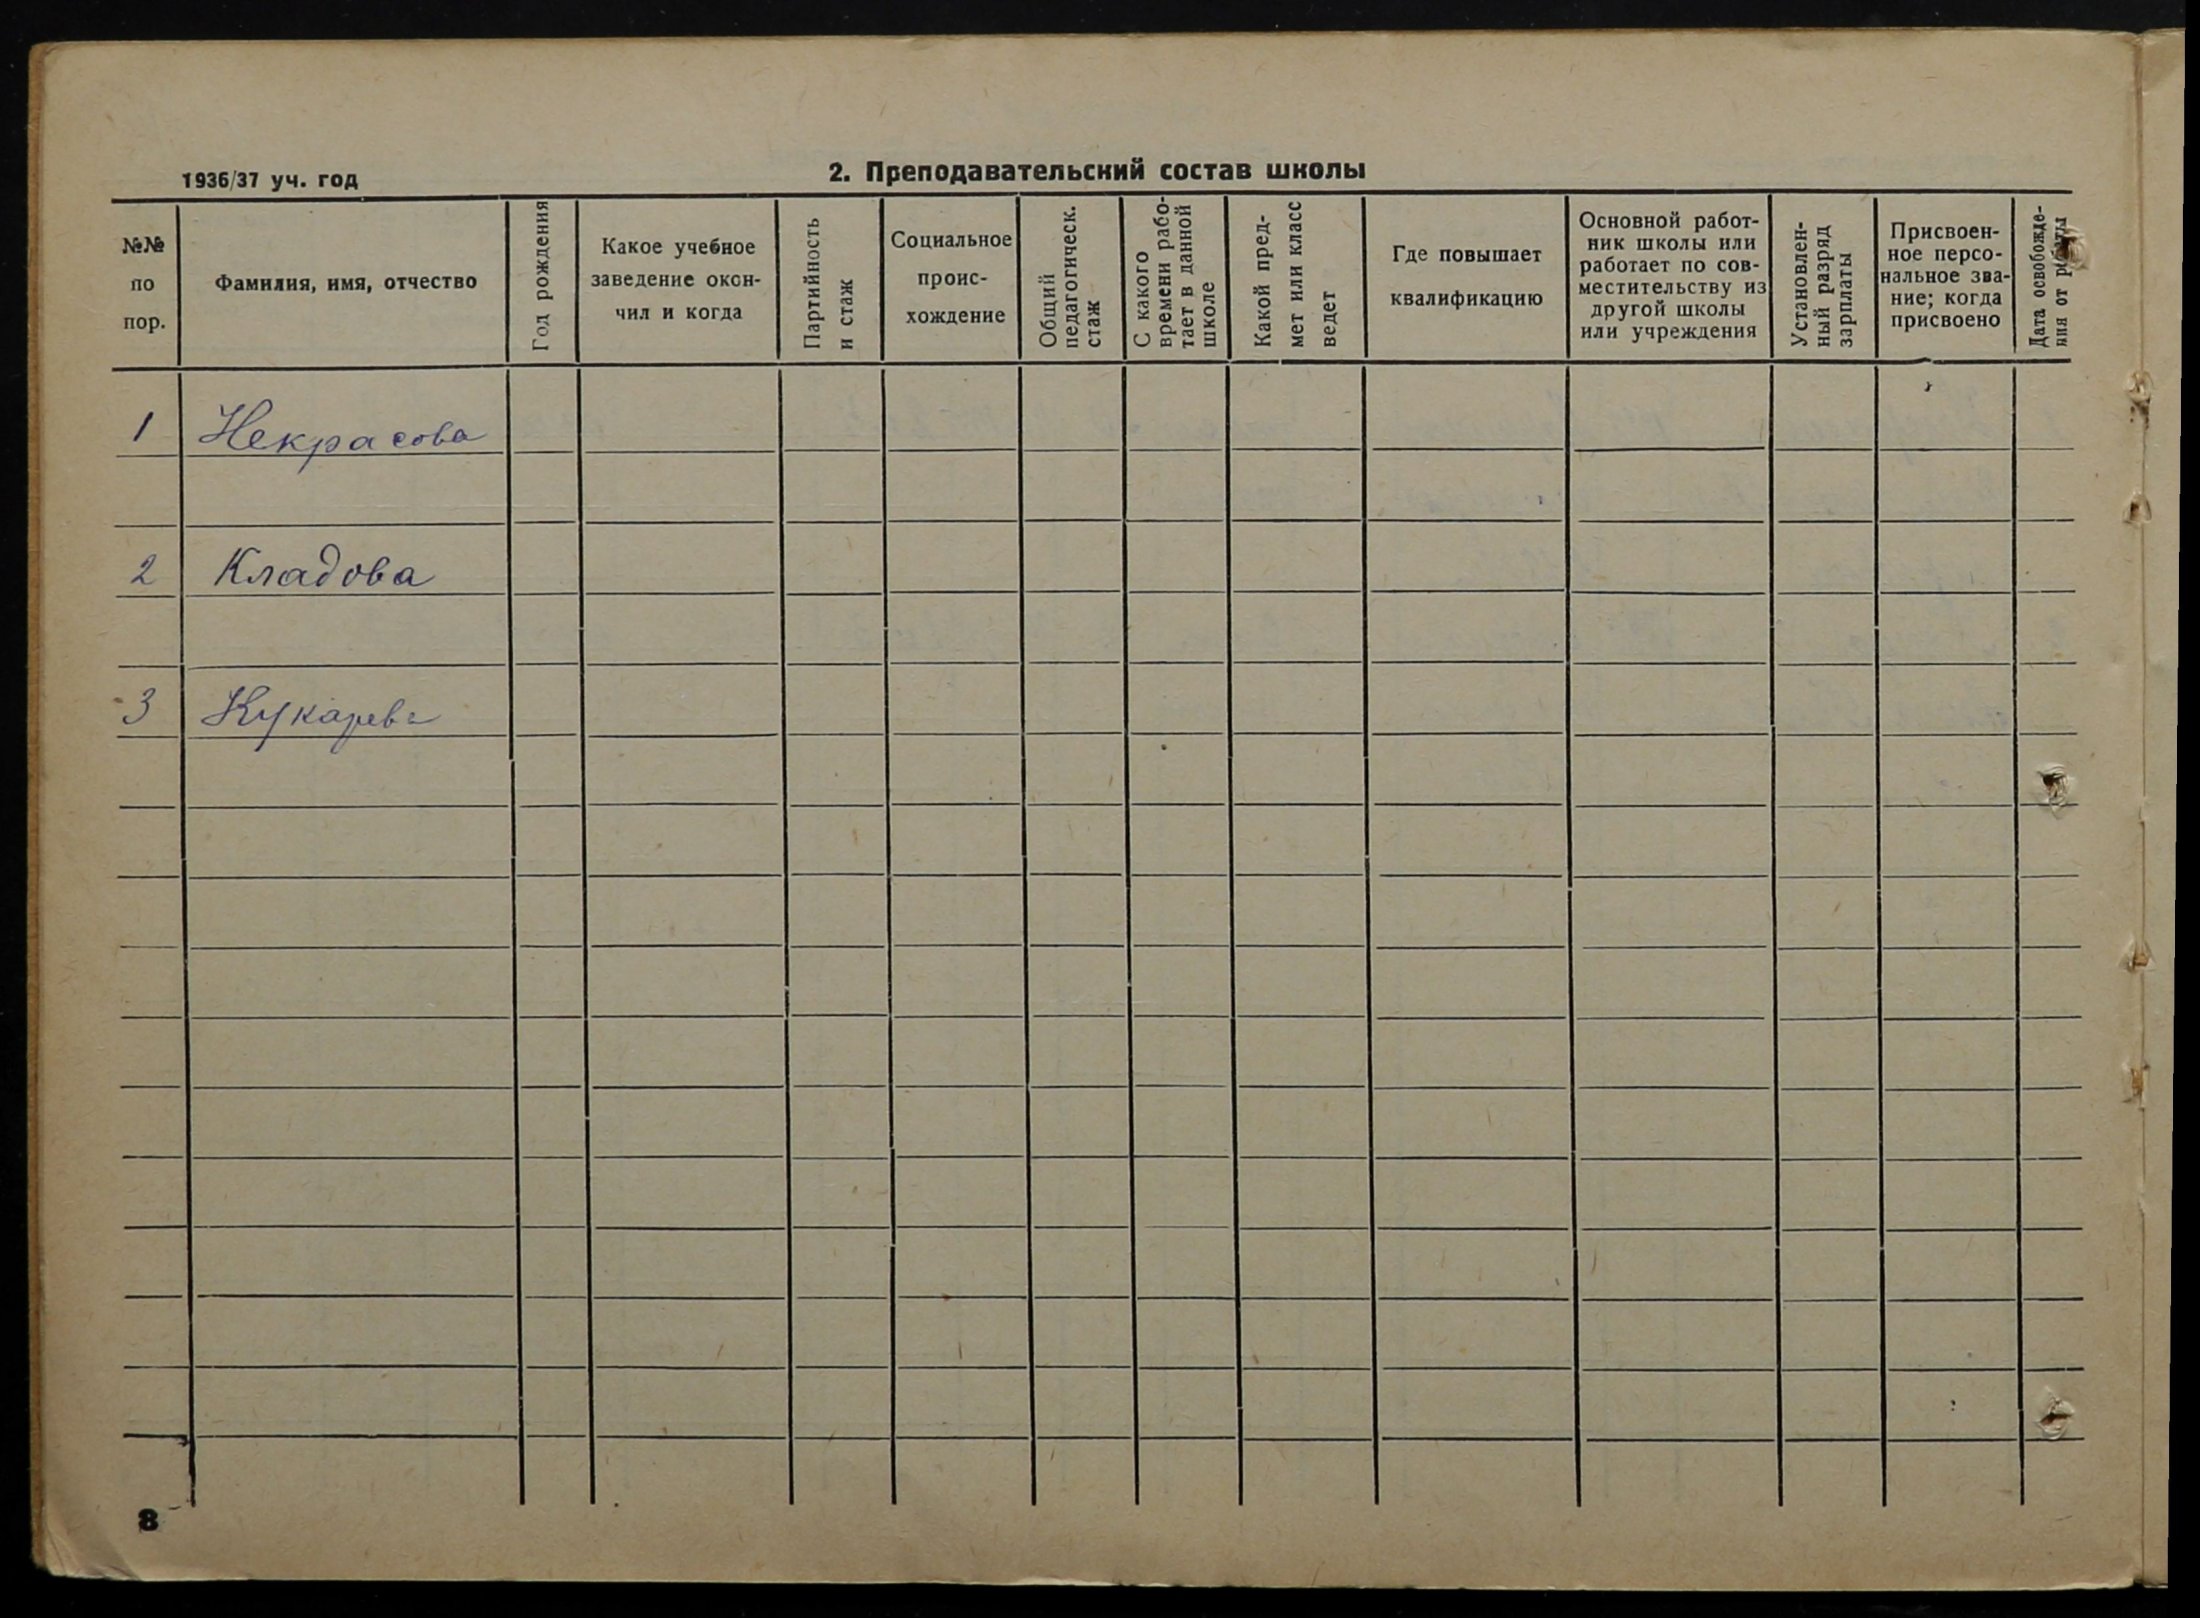 1936/37 уч. год
2. Преподавательский состав школы
№№
по
пор.
Фамилия, имя, отчество
Год рождения
Какое учебное
заведение окон-
чил и когда
Партийность
и стаж
Социальное
проис-
хождение
Общий
педагогическ.
стаж
С какого
времени рабо-
тает в данной
школе
Какой пред-
мет или класс
ведет
Где повышает
квалификацию
Основной работ-
ник школы или
работает по сов-
местительству из
другой школы
или учреждения
Установлен-
ный разряд
зарплаты
Присвоен-
ное персо-
нальное зва-
ние; когда
присвоено
Дата освобожде-
ния от работы
1 Некрасова
2 Кладова
3 Кукарева
8